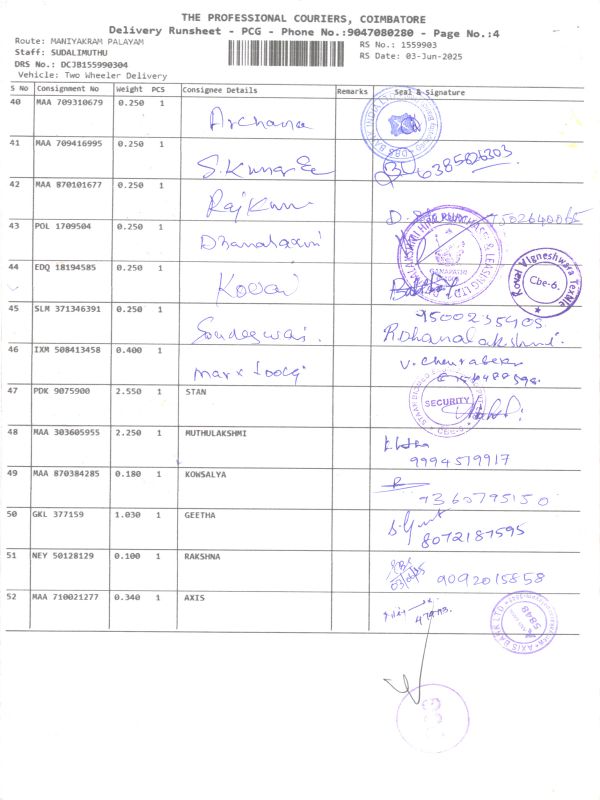 THE PROFESSIONAL COURIERS, COIMBATORE
Delivery Runsheet - PCG - Phone No.:9047080280 - Page No.:4
Route: MANIYAKRAM PALAYAM
RS No.: 1559903
Staff: SUDALIMUTHU
RS Date: 03-Jun-2025
DRS No.: DCJB155990304
Vehicle: Two Wheeler Delivery
S No Consignment No Weight PCS Consignee Details Remarks Seal & Signature
40 MAA 709310679 0.250 1 Archana
41 MAA 709416995 0.250 1 S.Kumar 6385626303
42 MAA 870101677 0.250 1 Rajkumar 7502640065
43 POL 1709504 0.250 1 Dhanalaxmi
44 EDQ 18194585 0.250 1 Kovai
Royal Vigneshwara Textile
Cbe-6.
45 SLM 371346391 0.250 1 9500235405
Rdhanalakshmi.
46 IXM 508413458 0.400 1
47 PDK 9075900 2.550 1 STAN SECURITY
CBE-6
48 MAA 303605955 2.250 1 MUTHULAKSHMI
9994519917
49 MAA 870384285 0.180 1 KOWSALYA
7360795150
50 GKL 377159 1.030 1 GEETHA
8072187595
51 NEY 50128129 0.100 1 RAKSHNA 9092015858
52 MAA 710021277 0.340 1 AXIS
AXIS BANK LTD
5848